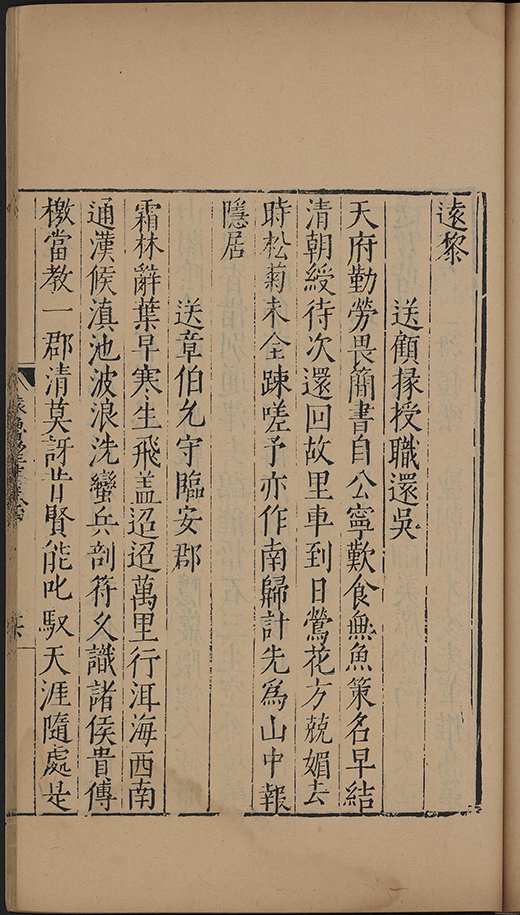 遠黎
送顧掾授職還吳
天府勤勞畏簡書自公寧歎食無魚策名早結
清朝綬待次還回故里車到日鶯花方兢媚去
時松菊未全踈嗟予亦作南歸計先為山中報
隱居
送章伯允守臨安郡
霜林辭葉早寒生飛盖迢迢萬里行洱海西南
通漢候滇池波浪洗蠻兵剖符久識諸侯貴傳
檄當教一郡清莫訝昔賢能叱馭天涯隨處是